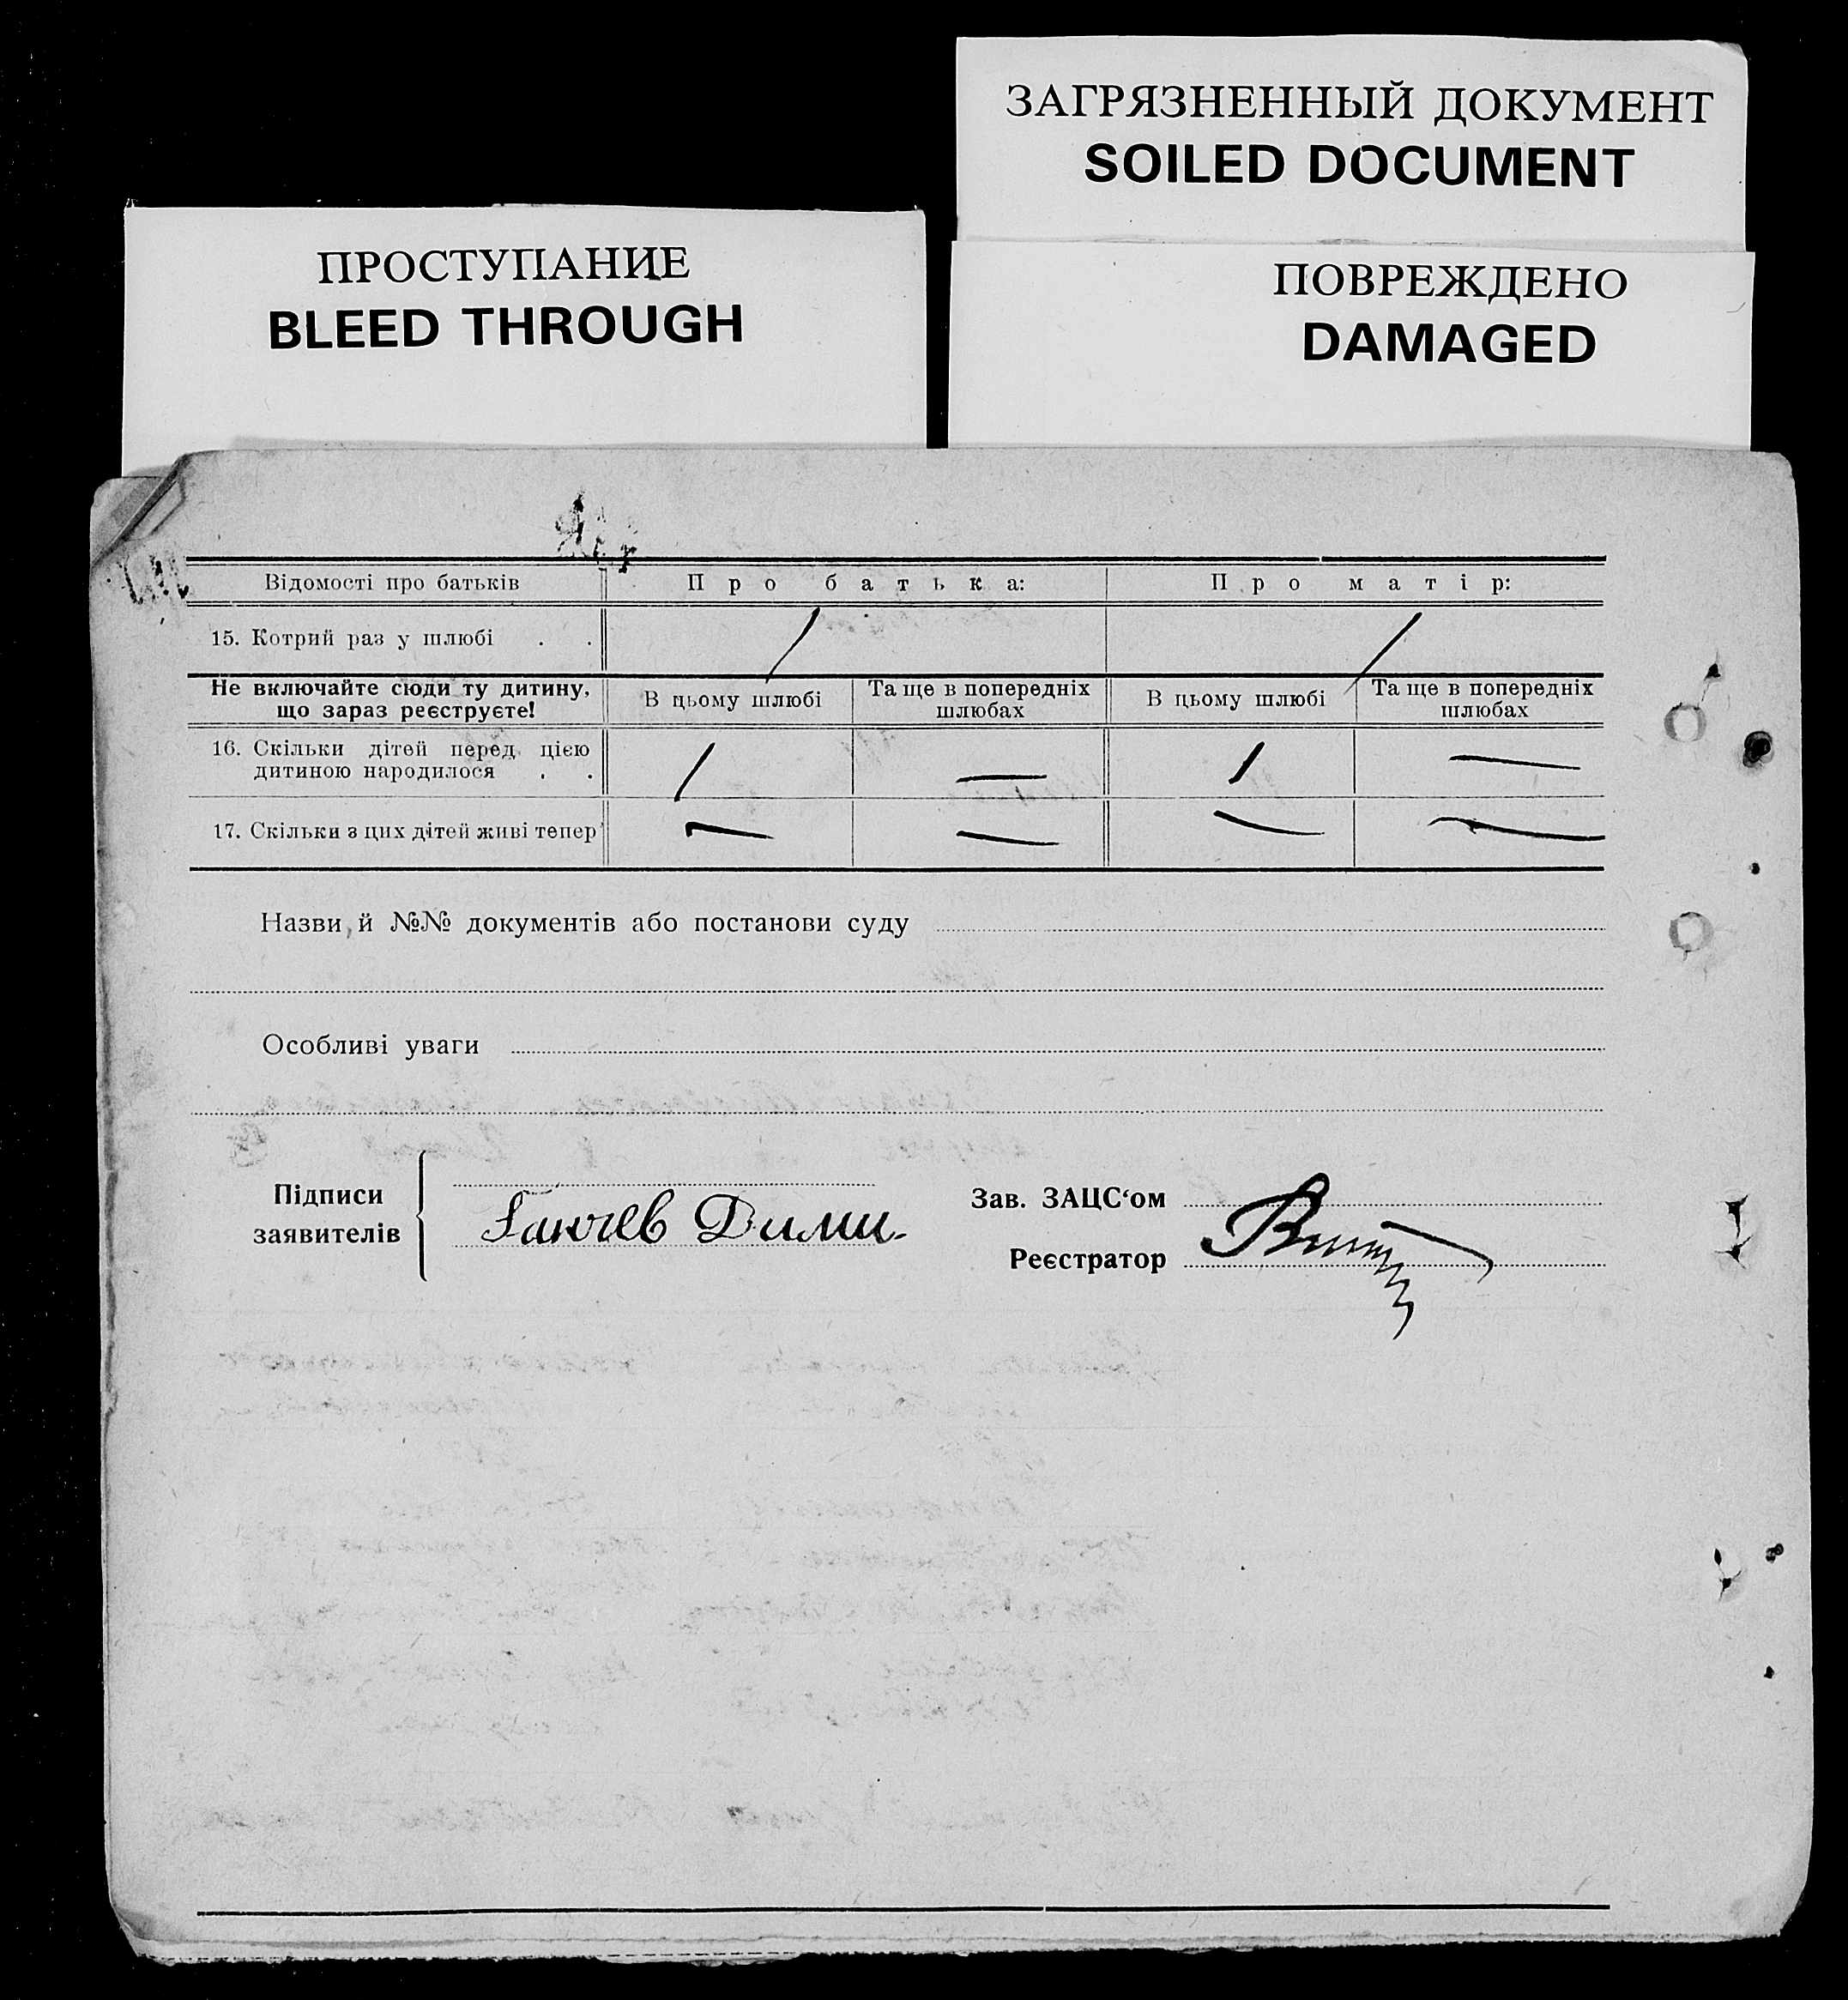 ЗАГРЯЗНЕННЫЙ ДОКУМЕНТ
SOILED DOCUMENT
ПРОСТУПАНИЕ
BLEED THROUGH
ПОВРЕЖДЕНО
DAMAGED
Відомості про батьків Про батька: Про матір:
15. Котрий раз у шлюбі . . / /
Не включайте сюди ту дитину, що зараз реєструєте! В цьому шлюбі Та ще в попередніх шлюбах В цьому шлюбі Та ще в попередніх шлюбах
16. Скільки дітей перед цією дитиною народилося . . / — / —
17. Скільки з цих дітей живі тепер — — — —
Назви й №№ документів або постанови суду
Особливі уваги
Підписи заявителів
Ганчев Дими.
Зав. ЗАЦС‘ом
Реєстратор